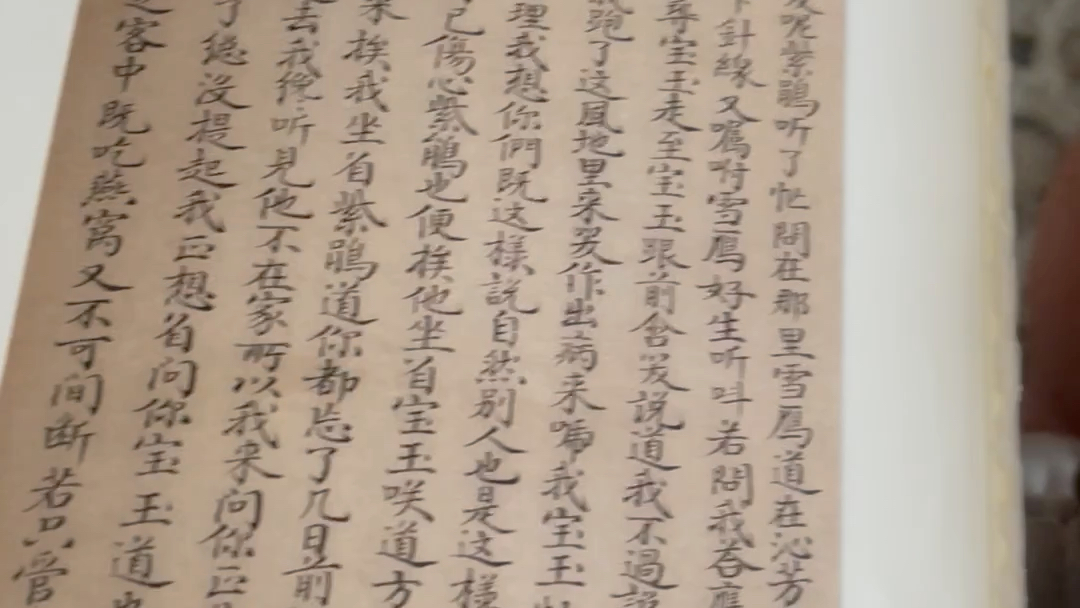 呢紫鵑听了忙問在那里雪鴈道在沁芳
針線又嘱咐雪鴈好生听叫若問我答應
尋宝玉走至宝玉跟前含笑説道我不過説
我跑了这風地里来哭作出病来唬我宝玉忙
理我想你們既这様説自然別人也是这様
己傷心紫鵑也便挨他坐着宝玉咲道方
来挨我坐着紫鵑道你都忘了几日前
去我纔听見他不在家所以我来問你正
了総没提起我正想着問你宝玉道也
客中既吃燕窩又不可间断若只管